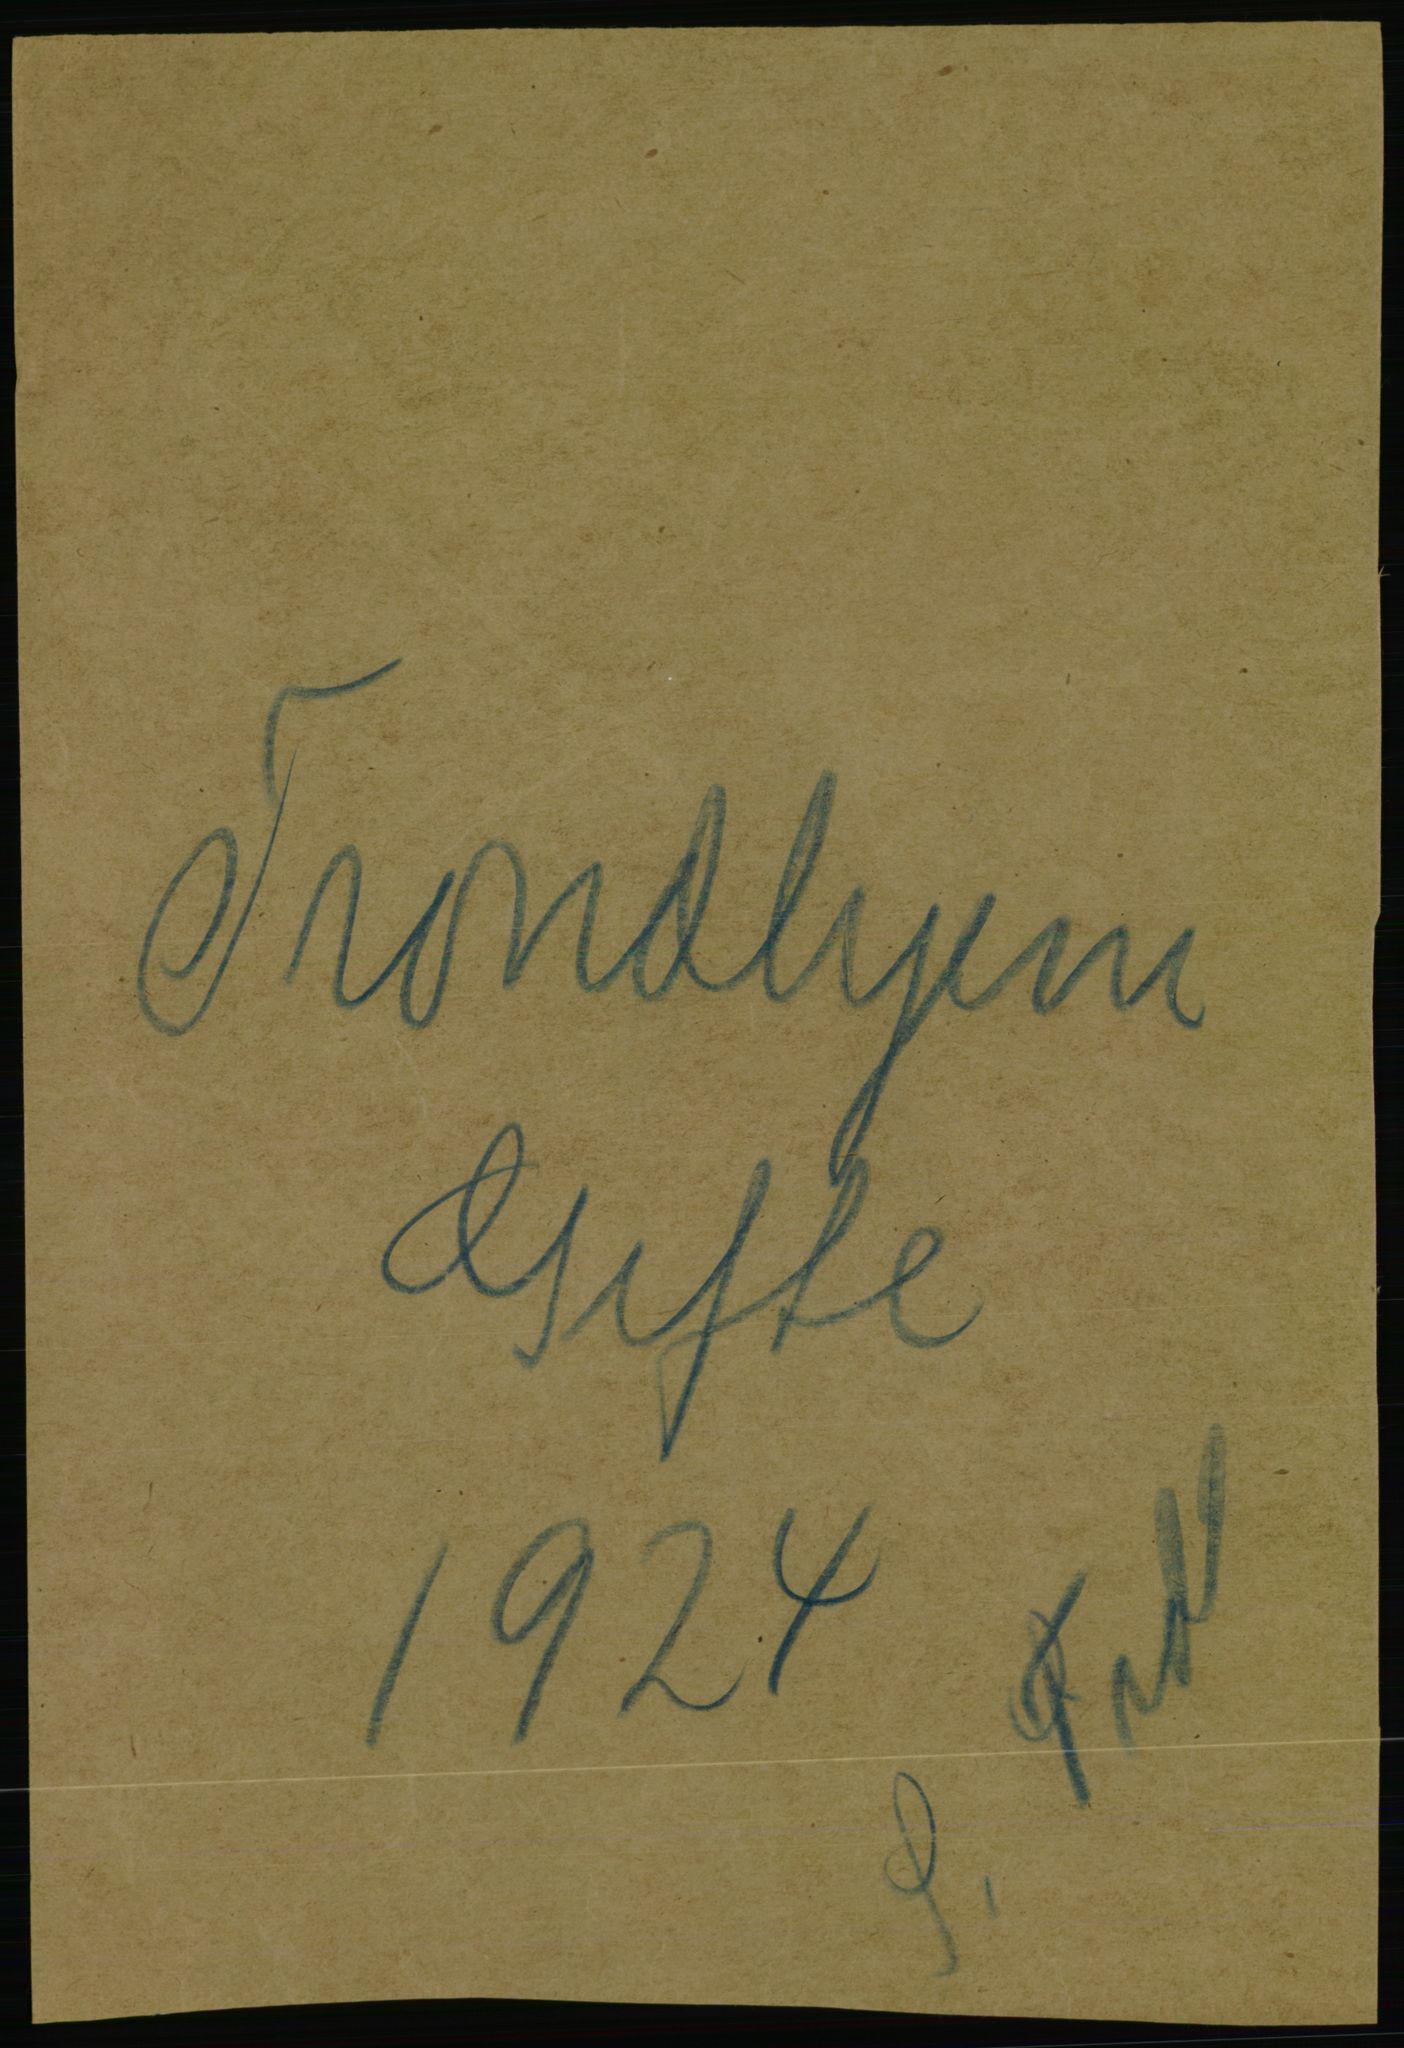 Trondhjem
Gifte
1924